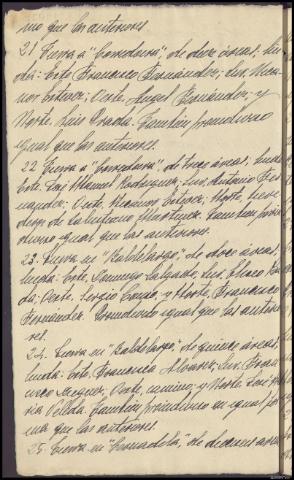 mo que los anteriores
21 Tierra a "Corredoira", de doce áreas, lin-
da: Este, Francisco Fernández; Sur,
Esteves; Oeste, Angel Fernández, y
Norte, Luis Prada. También proindiviso
igual que los anteriores.
22 Tierra a "Corredoira", de trece áreas, linda
Este, José Manuel Rodríguez; Sur, Antonio Fer-
nández; Oeste, Estévez; Norte,
de la Martínez. También proin-
diviso igual que las anteriores.
23. Tierra en "Valdelargo," de doce áreas,
linda: Este, Domingo Salgado; Sur,
Oeste, Sergio y Norte, Francisco
Fernández. Proindiviso igual que las anterio-
res.
24. Tierra en "Valdelargo", de quince áreas,
linda: Este, Francisco Alvarez; Sur, Fran-
cisco Oeste, camino; y Norte, José
También proindiviso en igual for-
ma que las anteriores.
25. Tierra en de áreas